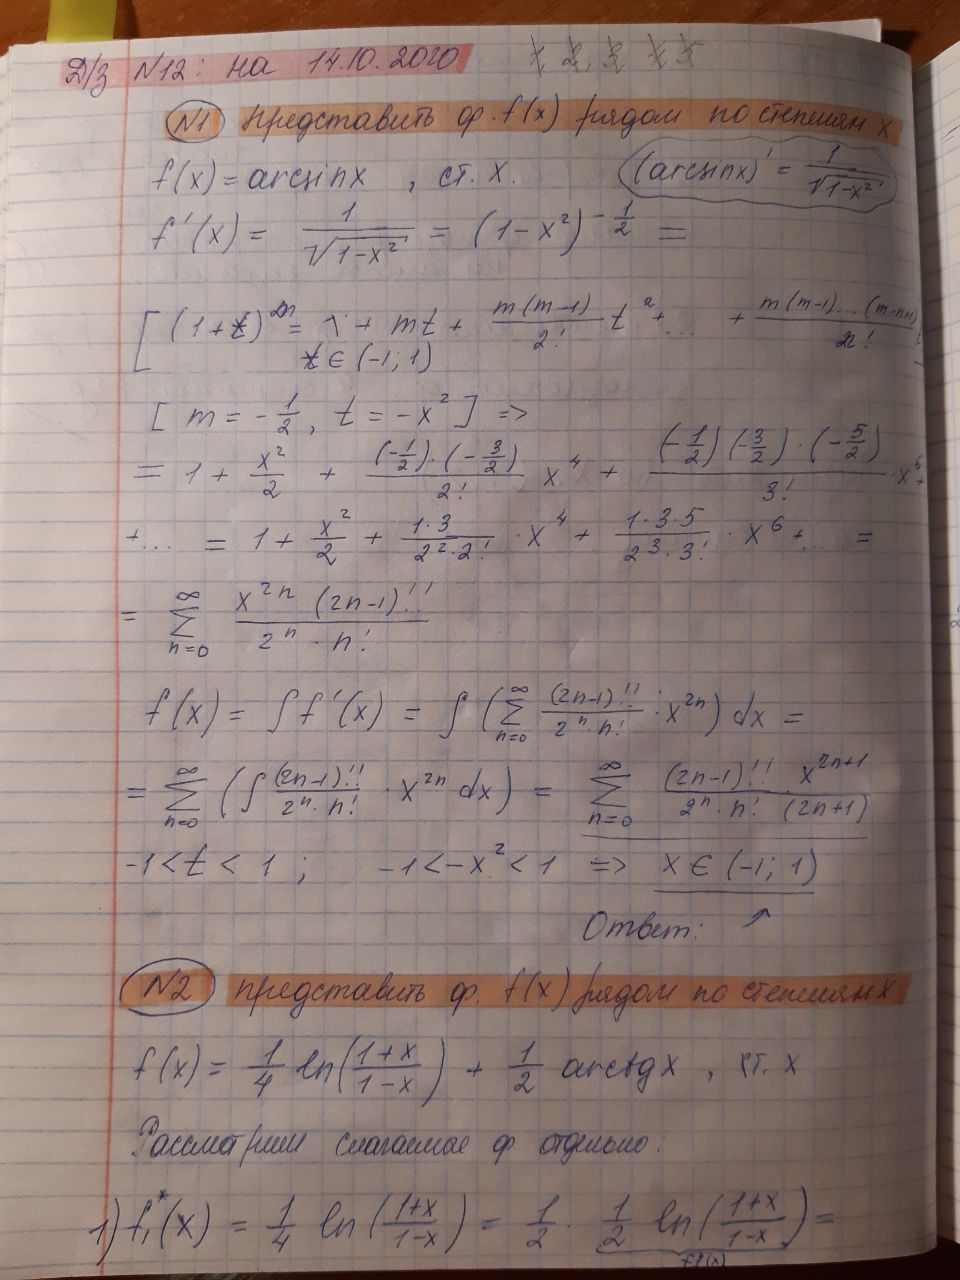 Д/з №12: на 14.10.2020 1 2, 3 4 5
№1 представить ф. f(x) рядом по степеням x
f(x) = arcsin x , ст. x. (arcsin x)' = 1/√(1-x²)
f'(x) = 1/√(1-x²) = (1-x²)^(-1/2) =
[ (1+t)^m = 1 + mt + m(m-1)/2! t² + ... + m(m-1)...(m-n+1)/n!
t ∈ (-1; 1)
[ m = -1/2, t = -x² ] =>
= 1 + x²/2 + (-1/2)·(-3/2)/2! x⁴ + (-1/2)(-3/2)·(-5/2)/3! · x⁶ +
+... = 1 + x²/2 + 1·3/(2²·2!) · x⁴ + 1·3·5/(2³·3!) · x⁶ + ... =
= ∑_{n=0}^{∞} x^(2n) (2n-1)!!/(2^n · n!)
f(x) = ∫f'(x) = ∫(∑_{n=0}^{∞} (2n-1)!!/(2^n·n!) · x^(2n)) dx =
= ∑_{n=0}^{∞} (∫ (2n-1)!!/(2^n·n!) · x^(2n) dx) = ∑_{n=0}^{∞} (2n-1)!! x^(2n+1)/(2^n · n! (2n+1))
-1 < t < 1 ; -1 < -x² < 1 => x ∈ (-1; 1)
Ответ: ↗
№2 представить ф. f(x) рядом по степеням x
f(x) = 1/4 ln((1+x)/(1-x)) + 1/2 arctg x , ст. x
Рассмотрим слагаемые ф отдельно.
1) f₁*(x) = 1/4 ln((1+x)/(1-x)) = 1/2 · 1/2 ln((1+x)/(1-x)) =